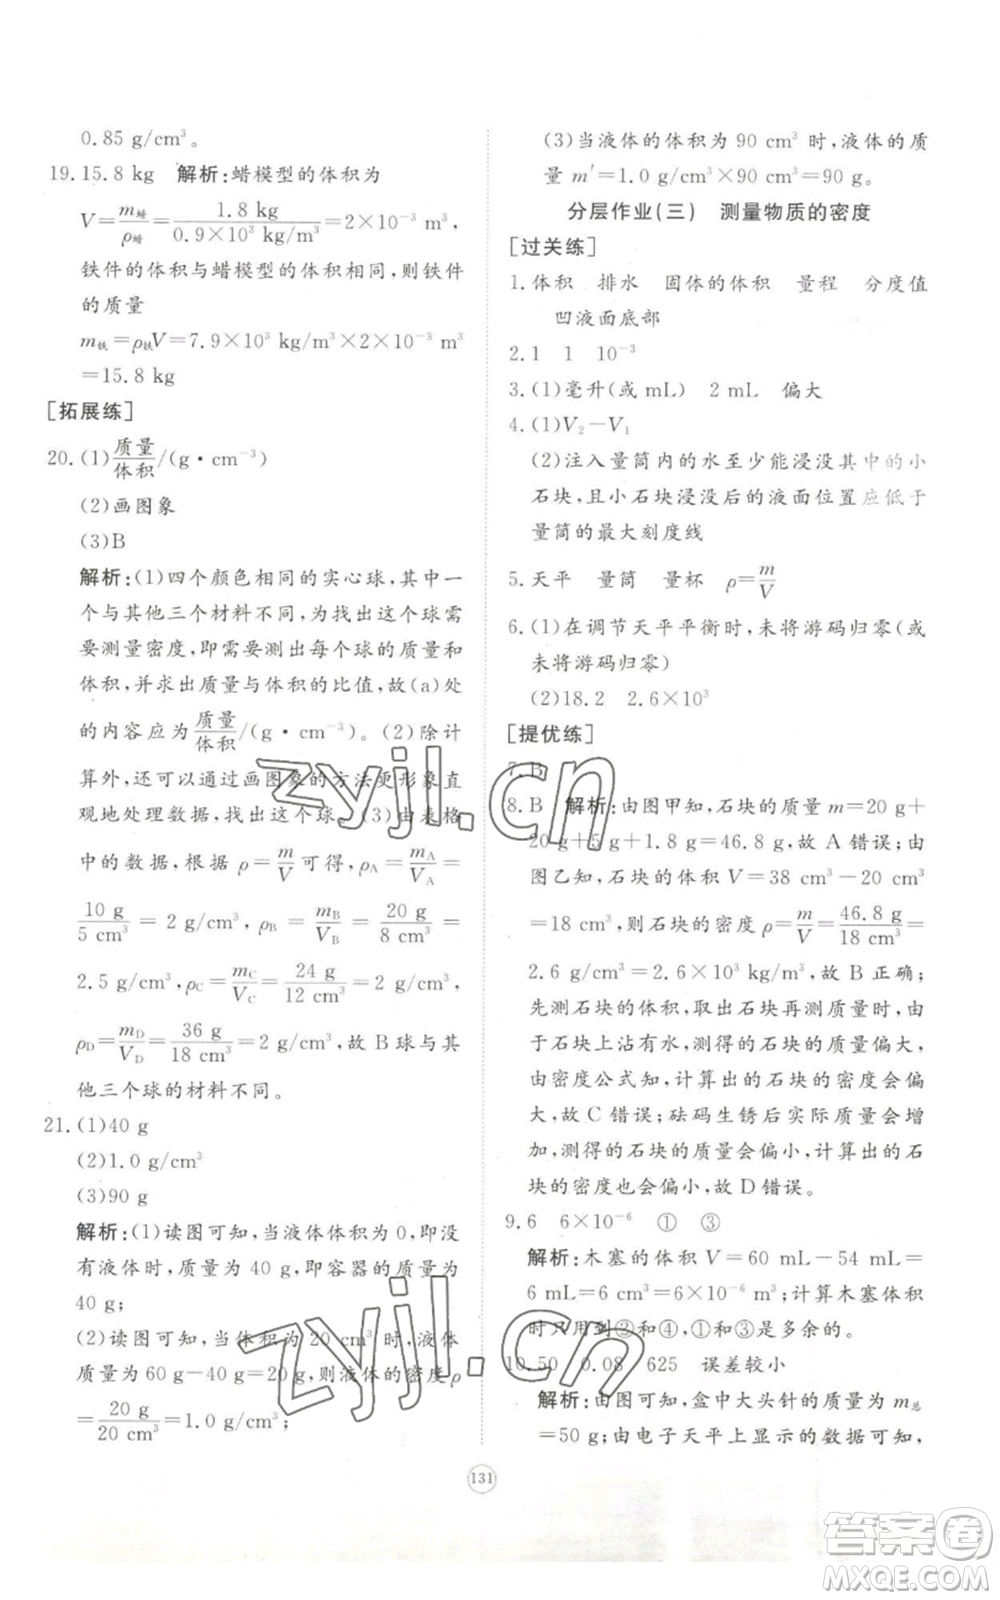 0.85 g/cm³。
19. 15.8 kg 解析:蜡模型的体积为
V=m蜡/ρ蜡=1.8 kg/0.9×10³ kg/m³=2×10⁻³ m³
铁件的体积与蜡模型的体积相同,则铁件
的质量
m铁=ρ铁V=7.9×10³ kg/m³×2×10⁻³ m³
=15.8 kg
[拓展练]
20. (1)质量/体积/(g·cm⁻³)
(2)画图象
(3)B
解析:(1)四个颜色相同的实心球,其中一
个与其他三个材料不同,为找出这个球需
要测量密度,即需要测出每个球的质量和
体积,并求出质量与体积的比值,故(a)处
的内容应为质量/体积/(g·cm⁻³)。(2)除计
算外,还可以通过画图象的方法更形象直
观地处理数据,找出这个球。(3)由表格
中的数据,根据 ρ=m/V可得,ρA=mA/VA=
10 g/5 cm³=2 g/cm³,ρB=mB/VB=20 g/8 cm³=
2.5 g/cm³,ρC=mC/VC=24 g/12 cm³=2 g/cm³,
ρD=mD/VD=36 g/18 cm³=2 g/cm³,故 B 球与其
他三个球的材料不同。
21. (1)40 g
(2)1.0 g/cm³
(3)90 g
解析:(1)读图可知,当液体体积为 0,即没
有液体时,质量为 40 g,即容器的质量为
40 g;
(2)读图可知,当体积为 20 cm³ 时,液体
质量为 60 g-40 g=20 g,则液体的密度 ρ
=20 g/20 cm³=1.0 g/cm³;
(3)当液体的体积为 90 cm³ 时,液体的质
量 m′=1.0 g/cm³×90 cm³=90 g。
分层作业(三) 测量物质的密度
[过关练]
1. 体积 排水 固体的体积 量程 分度值
凹液面底部
2. 1 1 10⁻³
3. (1)毫升(或 mL) 2 mL 偏大
4. (1)V₂-V₁
(2)注入量筒内的水至少能浸没其中的小
石块,且小石块浸没后的液面位置应低于
量筒的最大刻度线
5. 天平 量筒 量杯 ρ=m/V
6. (1)在调节天平平衡时,未将游码归零(或
未将游码归零)
(2)18.2 2.6×10³
[提优练]
7. B
8. B 解析:由图甲知,石块的质量 m=20 g+
20 g+5 g+1.8 g=46.8 g,故 A 错误;由
图乙知,石块的体积 V=38 cm³-20 cm³
=18 cm³,则石块的密度 ρ=m/V=46.8 g/18 cm³=
2.6 g/cm³=2.6×10³ kg/m³,故 B 正确;
先测石块的体积,取出石块再测质量时,由
于石块上沾有水,测得的石块的质量偏大,
由密度公式知,计算出的石块的密度会偏
大,故 C 错误;砝码生锈后实际质量会增
加,测得的石块的质量偏小,计算出的石
块的密度也会偏小,故 D 错误。
9. 6 6×10⁻⁶ ① ③
解析:木塞的体积 V=60 mL-54 mL=
6 mL=6 cm³=6×10⁻⁶ m³;计算木塞体积
时只用到②和④,①和③是多余的。
10. 50 0.08 625 误差较小
解析:由图可知,盒中大头针的质量为 m总
=50 g;由电子天平上显示的数据可知,
131
zyjl.cn
zyjl.cn
答案圈
MXQE.COM